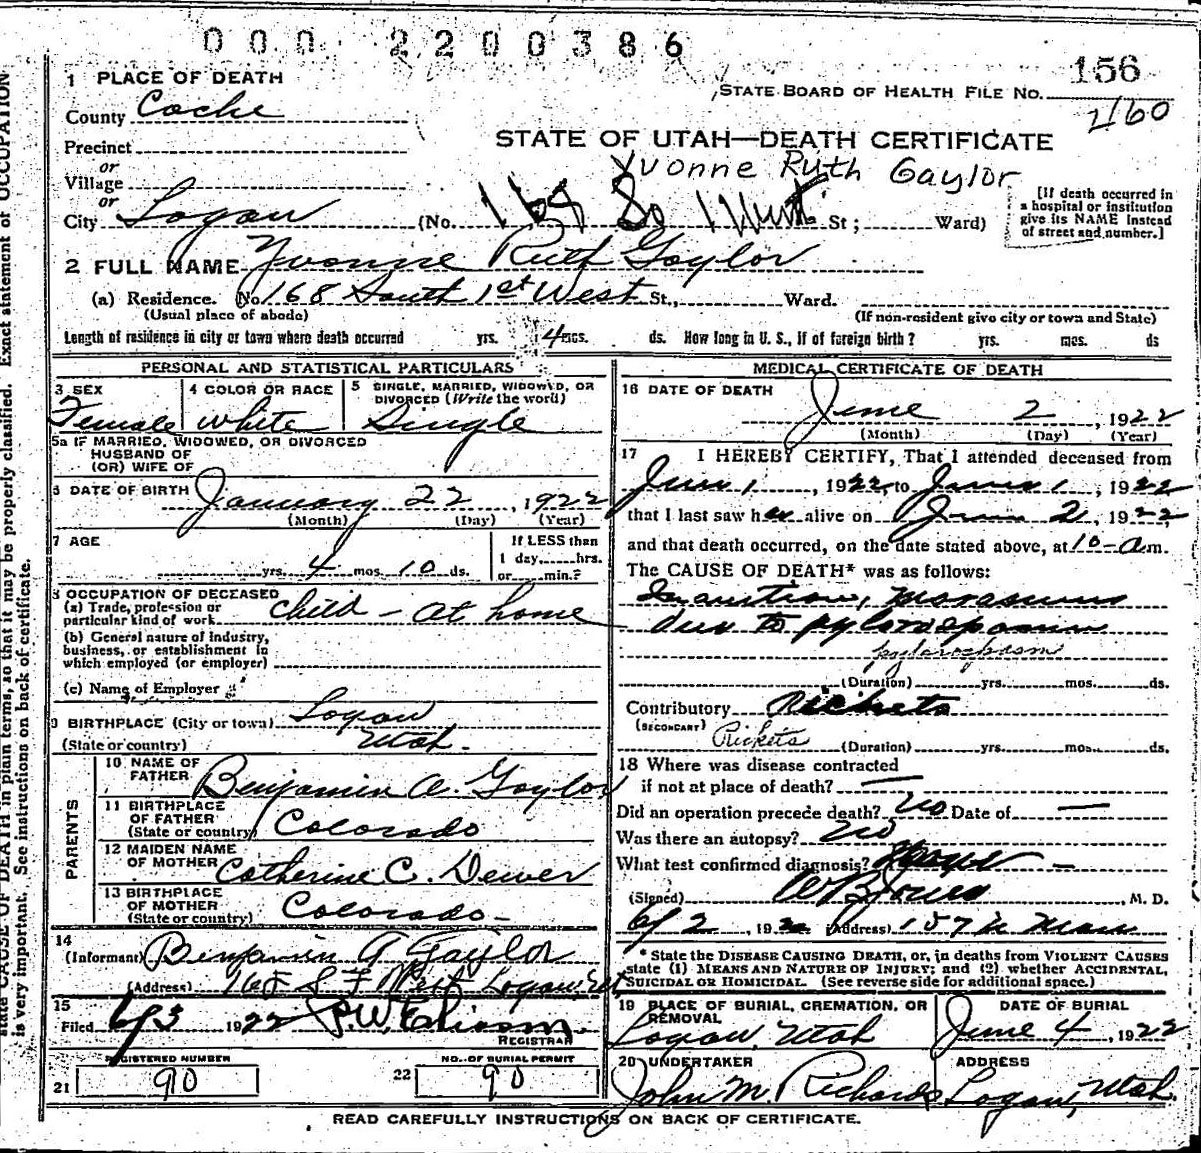 000 2200386
156
1 PLACE OF DEATH
STATE BOARD OF HEALTH FILE NO.
460
County Cache
STATE OF UTAH—DEATH CERTIFICATE
Precinct
Yvonne Ruth Gaylor
or
Village
or
City Logan (No. 168 So 1 West St; Ward)
[If death occurred in
a hospital or institution
give its NAME instead
of street and number.]
2 FULL NAME Yvonne Ruth Gaylor
(a) Residence. No. 168 South 1st West St., Ward.
(Usual place of abode) (If non-resident give city or town and State)
Length of residence in city or town where death occurred yrs. 4 mos. ds. How long in U. S., if of foreign birth? yrs. mos. ds
PERSONAL AND STATISTICAL PARTICULARS
3 SEX 4 COLOR OR RACE 5 SINGLE, MARRIED, WIDOWED, OR
DIVORCED (Write the word)
Female White Single
5a IF MARRIED, WIDOWED, OR DIVORCED
HUSBAND OF
(OR) WIFE OF
6 DATE OF BIRTH January 22, 1922
(Month) (Day) (Year)
7 AGE If LESS than
1 day, hrs.
yrs. 4 mos. 10 ds. or min.?
8 OCCUPATION OF DECEASED
(a) Trade, profession or
particular kind of work child - at home
(b) General nature of industry,
business, or establishment in
which employed (or employer)
(c) Name of Employer
9 BIRTHPLACE (City or town) Logan
(State or country) Utah.
PARENTS
10 NAME OF
FATHER Benjamin A. Gaylor
11 BIRTHPLACE
OF FATHER
(State or country) Colorado
12 MAIDEN NAME
OF MOTHER Catherine C. Dewer
13 BIRTHPLACE
OF MOTHER
(State or country) Colorado-
14
(Informant) Benjamin A Gaylor
(Address) 168 S 1 West Logan,
15
Filed 6/3 1922
REGISTRAR
REGISTERED NUMBER NO. OF BURIAL PERMIT
21 90 22 90
MEDICAL CERTIFICATE OF DEATH
16 DATE OF DEATH
June 2, 1922
(Month) (Day) (Year)
17 I HEREBY CERTIFY, That I attended deceased from
June 1, 1922, to June 1, 1922
that I last saw her alive on June 2, 1922
and that death occurred, on the date stated above, at 10-a m.
The CAUSE OF DEATH* was as follows:
Inanition, marasmus
due to pylorospasm
pylorospasm
(Duration) yrs. mos. ds.
Contributory Rickets
(SECONDARY)
Rickets (Duration) yrs. mos. ds.
18 Where was disease contracted
if not at place of death? —
Did an operation precede death? no Date of —
Was there an autopsy? no
What test confirmed diagnosis? —
(Signed) , M. D.
6/2, 19 (Address) 157 N Main
* State the DISEASE CAUSING DEATH, or, in deaths from VIOLENT CAUSES
state (1) MEANS AND NATURE OF INJURY; and (2) whether ACCIDENTAL,
SUICIDAL OR HOMICIDAL. (See reverse side for additional space.)
19 PLACE OF BURIAL, CREMATION, OR
REMOVAL DATE OF BURIAL
Logan, Utah June 4, 1922
20 UNDERTAKER ADDRESS
John M. Richards Logan, Utah.
READ CAREFULLY INSTRUCTIONS ON BACK OF CERTIFICATE.
state CAUSE OF DEATH in plain terms, so that it may be properly classified. Exact statement of OCCUPATION
is very important. See instructions on back of certificate.